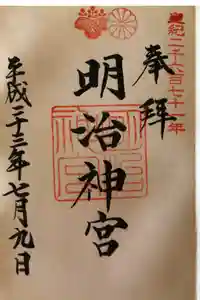 皇紀二千六百七十一年
奉拝
明治神宮
平成二十三年七月九日